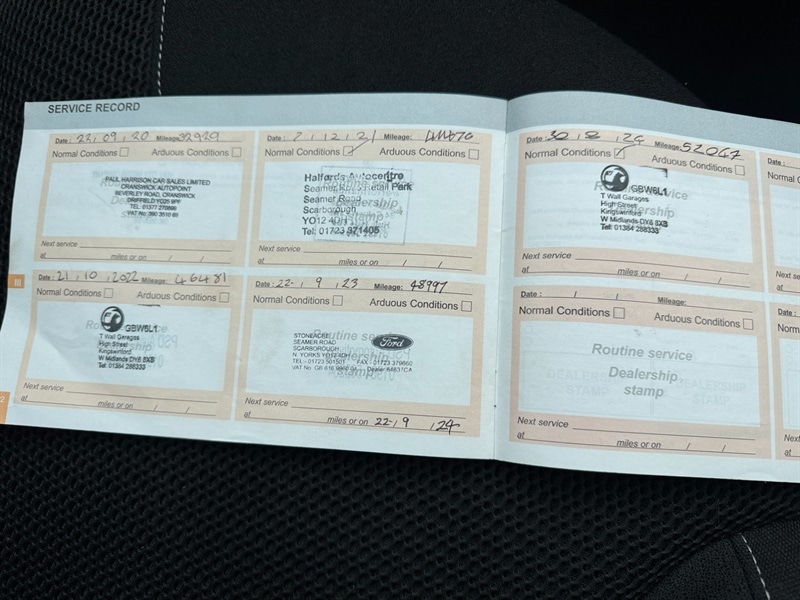 SERVICE RECORD
Date : 22, 09, 20 Mileage: 32929
Normal Conditions Arduous Conditions
PAUL HARRISON CAR SALES LIMITED
CRANSWICK AUTOPOINT
BEVERLEY ROAD, CRANSWICK
DRIFFIELD YO25 9PF
TEL: 01377 270899
Next service
at miles or on / /
Date : 7, 12, 21 Mileage:
Normal Conditions Arduous Conditions
Halfords Autocentre
Seamer Road Retail Park
Seamer Road
Scarborough
YO12 4DH
Tel: 01723 371405
Next service
at miles or on / /
Date : 21, 10, 2022 Mileage: 46481
Normal Conditions Arduous Conditions
GBW6L1
T Wall Garages
High Street
Kingswinford
W Midlands DY6 8XB
Tel: 01384 288333
Next service
at miles or on / /
Date : 22- , 9 , 23 Mileage: 48997
Normal Conditions Arduous Conditions
Routine service
STONEACRE
SEAMER ROAD
SCARBOROUGH
N. YORKS YO12 4DH
TEL:- 01723 501501 FAX:- 01723 379660
Dealer 64837CA
Ford
Next service
at miles or on 22- / 9 / 24
Date : 30, 8, 24 Mileage: 52047
Normal Conditions Arduous Conditions
GBW6L1
T Wall Garages
High Street
Kingswinford
W Midlands DY6 8XB
Tel: 01384 288333
Next service
at miles or on / /
Date : / / Mileage:
Normal Conditions Arduous Conditions
Routine service
Dealership
stamp
Next service
at miles or on / /
Date :
Normal
Next
at
Date :
Normal
Next
at